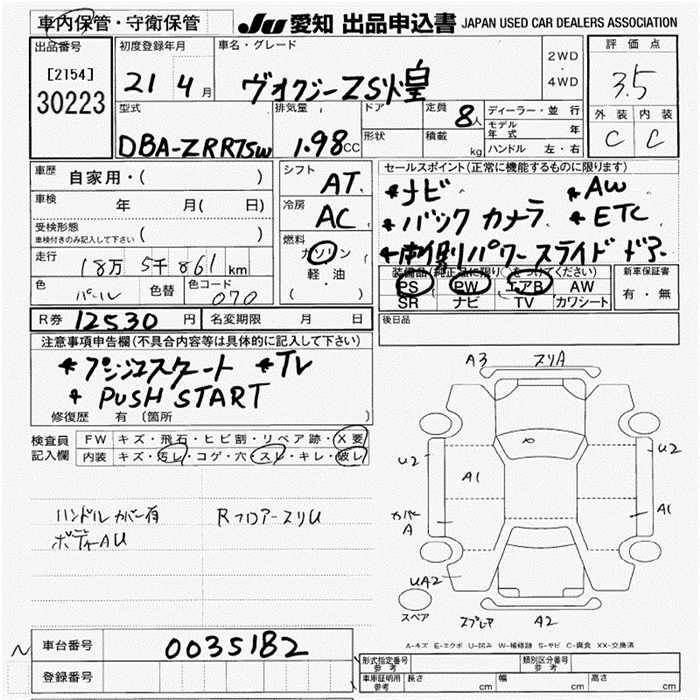 車内保管・守衛保管
JU 愛知 出品申込書 JAPAN USED CAR DEALERS ASSOCIATION
出品番号
[2154]
30223
初度登録年月
21 4月
車名・グレード
ヴォクシーZS煌
2WD
・
4WD
評価点
3.5
外装 内装
C C
型式
DBA-ZRR75W
排気量
1.98CC
ドア
形状
定員 8人
積載 kg
ディーラー・並 行
モデル年式 年
ハンドル 左・右
車歴 自家用・( )
車検 年 月( 日)
受検形態
車検付きのみ記入して下さい ( )
走行 18万 5千 861 km
色 パール 色替 色コード 070
シフト AT
冷房 AC
燃料
ガソリン
軽 油
( ・ )
セールスポイント(正常に機能するものに限ります)
*ナビ *AW
*バックカメラ *ETC
*両側パワースライドドアー
装備品(純正品に限り○をつけてください)
PS PW エアB AW
SR ナビ TV カワシート
新車保証書
有・無
R券 12530 円 名変期限 月 日
後日品
注意事項申告欄(不具合内容等は具体的に記入して下さい)
*TV
*PUSH START
修復歴 有 〔箇所 〕
検査員
記入欄
FW キズ・飛石・ヒビ割・リペア跡・X要
内装 キズ・汚レ・コゲ・穴・スレ・キレ・破レ
ハンドルカバー有 Rフロアースリキ
ボディAU
A3 スリA
U2 A1 U2
カバーA A1
UA2
スペア
A2
A-キズ E-エクボ U-凹み W-補修跡 S-サビ C-腐食 XX-交換済
車台番号 0035182
登録番号
型式指定番号 参考 類別区分番号 参考
車庫証明用 参考 長さ cm 幅 cm 高さ cm